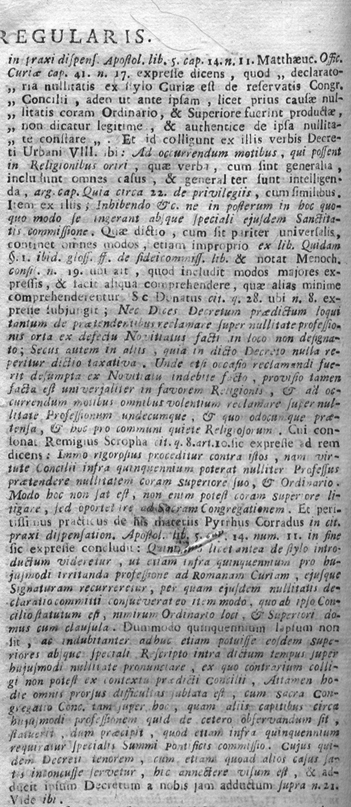 REGULARIS.
in praxi dispens. Apostol. lib. 5. cap. 14. n. 11. Matthæuc. Offic.
Curiæ cap. 41. n. 17. expresse dicens, quod „ declarato-
„ ria nullitatis ex stylo Curiæ est de reservatis Congr.
„ Concilii, adeo ut ante ipsam, licet prius causæ nul-
„ litatis coram Ordinario, & Superiore fuerint productæ,
„ non dicatur legitime, & authentice de ipsa nullita-
„ te constare „. Et id colligunt ex illis verbis Decre-
ti Urbani VIII. ibi: Ad occurrendum motibus, qui possent
in Religionibus oriri, quæ verba, cum sint generalia,
includunt omnes casus, & generaliter sunt intelligen-
da, arg. cap. Quia circa 22. de privilegiis, cum similibus.
Item ex illis; Inhibendo &c. ne in posterum in hoc quo-
quo modo se ingerant absque speciali ejusdem Sanctita-
tis commissione. Quæ dictio, cum sit pariter universalis,
continet omnes modos, etiam improprio ex lib. Quidam
§. 1. ibid. gloss. ff. de fideicommiss. lib. & notat Menoch.
consil. n. 19. ubi ait, quod includit modos majores ex-
pressis, & facit aliqua comprehendere, quæ alias minime
comprehenderentur. Sic Donatus cit. q. 28. ubi n. 8. ex-
presse subjungit; Nec Dices Decretum prædictum loqui
tantum de prætendentibus reclamare super nullitate professio-
nis orta ex defectu Novitiatus facti in loco non designa-
to; Secus autem in aliis, quia in dicto Decreto nulla re-
peritur dictio taxativa. Unde etsi occasio reclamandi fue-
rit desumpta ex Novitiatu indebite facto, provisio tamen
facta est universaliter in favorem Religionis, & ad oc-
currendum motibus omnibus volentium reclamare super nul-
litate Professionum undecumque, & quomodocumque præ-
tensa, & hoc pro communi quiete Religiosorum. Cui con-
sonat Remigius Scropha cit. q. 8. art. 10. sic expresse ad rem
dicens: Immo rigorosius proceditur contra istos, nam vir-
tute Concilii infra quinquennium poterat nulliter Professus
prætendere nullitatem coram Superiore suo, & Ordinario.
Modo hoc non sat est, non enim potest coram Superiore li-
tigare, sed oportet ire ad Sacram Congregationem. Et peri-
tissimus practicus de his materiis Pyrrhus Corradus in cit.
praxi dispensation. Apostol. lib. 5. 14. num. 11. in fine
sic expresse concludit: licet antea de stylo intro-
ductum videretur, ut etiam infra quinquennium pro hu-
jusmodi irritanda professione ad Romanam Curiam, ejusque
Signaturam recurreretur, per quam ejusdem nullitatis de-
claratio committi consueverat eo item modo, quo ab ipso Con-
cilio statutum est, nimirum Ordinario loci, & Superiori do-
mus cum clausula: Dummodo quinquennium lapsum non
sit; ac indubitanter adhuc etiam potuisse eosdem Supe-
riores absque speciali Rescripto intra dictum tempus super
hujusmodi nullitate pronunciare, ex quo contrarium colli-
gi non potest ex contextu prædicti Concilii, Attamen ho-
die omnis prorsus difficultas sublata est, cum Sacra Con-
gregatio Conc. tam super hoc, quam aliis capitibus circa
hujusmodi professionem quid de cetero observandum sit,
statuerit, dum præcipit, quod etiam infra quinquennium
requiratur specialis Summi Pontificis commissio. Cujus qui-
dem Decreti tenorem, cum etiam quoad alios casus sa-
tis inconcusse servetur, hic annectere visum est, & ad-
ducit ipsum Decretum a nobis jam adductum supra n. 21.
Vide ibi.